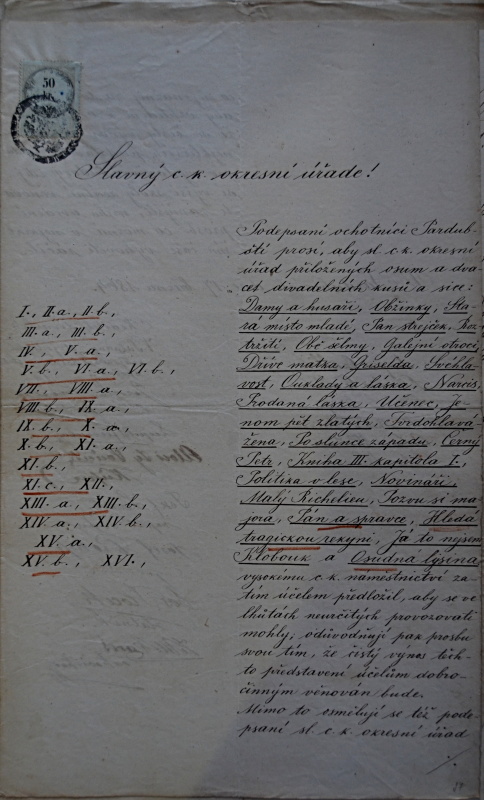 50
Slavný c. k. okresní úřade!
Podepsaní ochotníci Pardub-
ští prosí, aby sl. c. k. okresní
úřad přiložených osum a dva-
cet divadelních kusů a sice:
I., II. a., II. b.,
III. a., III. b.,
IV., V. a.,
V. b., VI. a., VI. b.,
VII., VIII. a.,
VIII. b., IX. a.,
IX. b., X. a.,
X. b., XI. a.,
XI. b.,
XI. c., XII.,
XIII. a., XIII. b.,
XIV. a., XIV. b.,
XV. a.,
XV. b., XVI.,
Damy a husaři, Obžinky, Sta-
rá místo mladé, Pan strejček, Roz-
tržití, Obě šelmy, Galejní otroci,
Dříve matka, Griselda, Svéhla-
vost, Ouklady a láska, Narcis,
Prodaná láska, Učenec, Je-
nom pět zlatých, Tvrdohlavá
žena, Po slunce západu, Černý
Petr, Kniha III. kapitola I.,
Politika v lese, Novináři,
Malý Richelieu, Pozvu si ma-
jora, Pán a správce, Hledá
tragickou rekyni, Já to nejsem
Klobouk a Osudná lysina
vysokému c. k. náměstnictví za-
tím účelem předložil, aby se ve
lhůtách neurčitých provozovati
mohly, odůvodňují pak prosbu
svou tím, že čistý výnos těch-
to představení účelům dobro-
činným věnován bude.
Mimo to osmělují se též pode-
psaní sl. c. k. okresní úřad